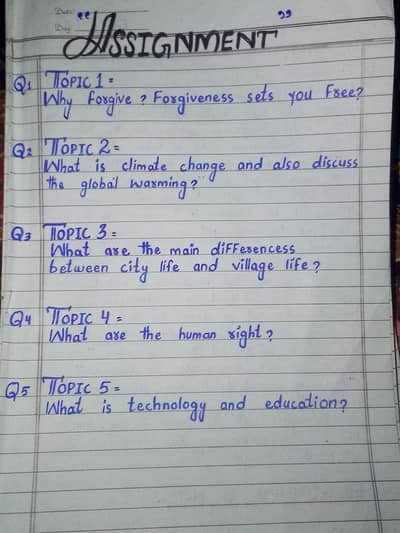 Date:
Day:
" "
ASSIGNMENT
Q1 TOPIC 1 =
Why Forgive ? Forgiveness sets you Free?
Q2 TOPIC 2 =
What is climate change and also discuss
the global warming?
Q3 TOPIC 3 =
What are the main differencess
between city life and village life ?
Q4 TOPIC 4 =
What are the human right ?
Q5 TOPIC 5 =
What is technology and education?